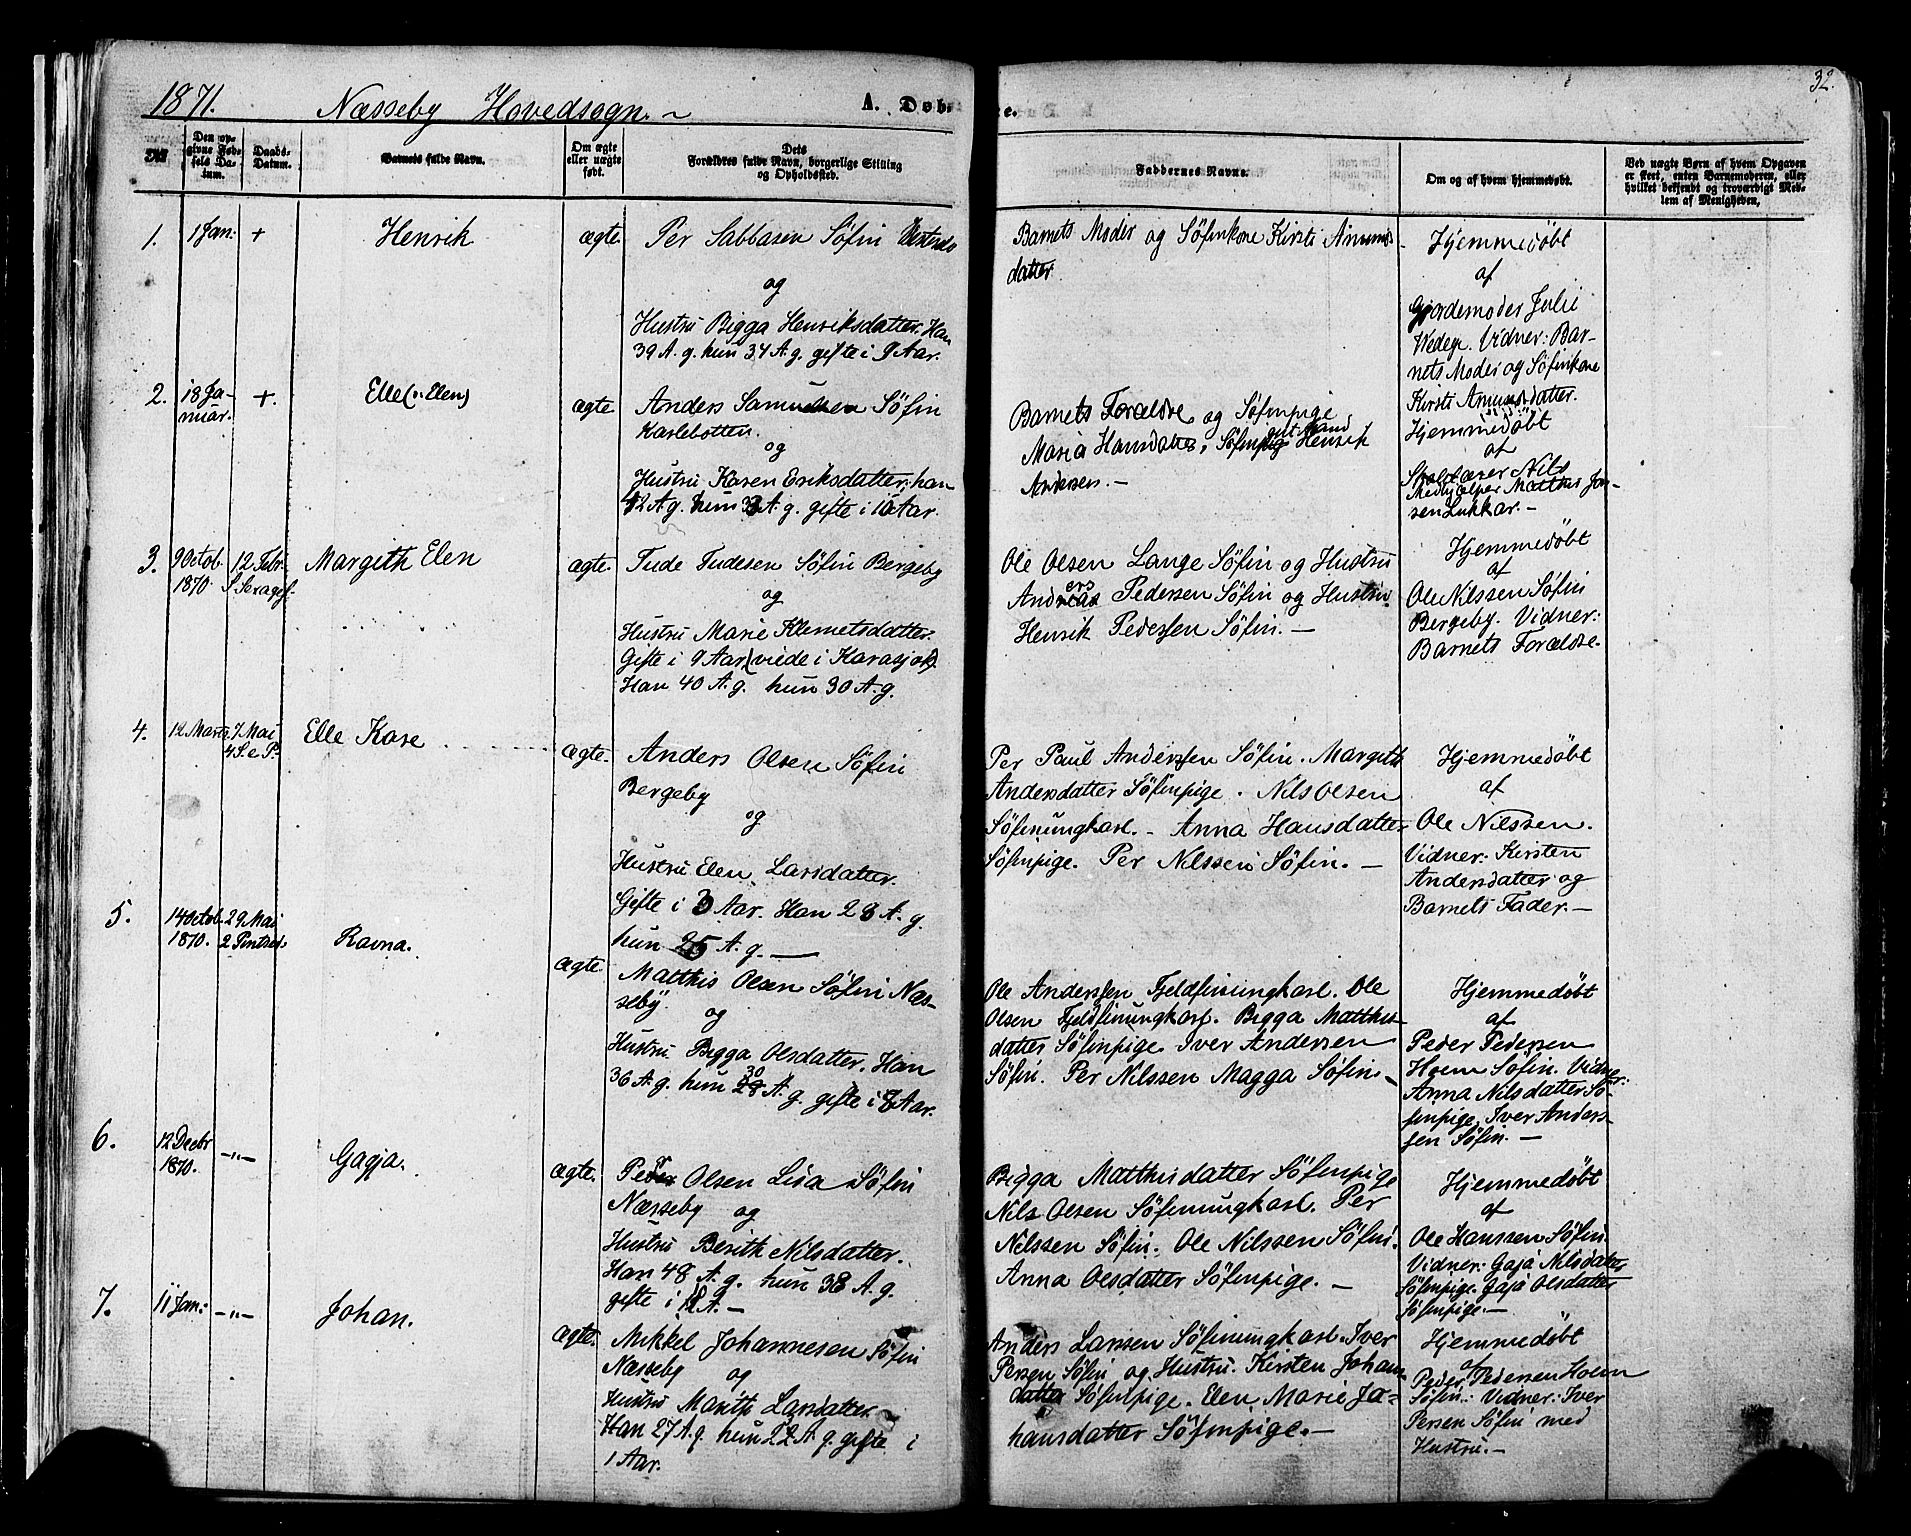 1871. Næsseby Hovedsogn. ~ A. Døb- te. 32.
Den opgivne Fødsels Datum.
Daabs-Datum.
Barnets fulde Navn.
Om ægte eller uægte født.
Dets Forældres fulde Navn, borgerlige Stilling og Opholdssted.
Faddernes Navne.
Om og af hvem hjemmedøbt.
Ved uægte Børn af hvem Opgaven er skeet, enten Barnemoderen, eller hvilket bekjendt og troværdigt Medlem af Menigheden.
1. 1 Jan: + Henrik ægte.
Per Sabbasen Søfin
og
Hustru Bigga Henriksdatter. Han
39 A. g. hun 34 A. g. gifte i 9 Aar.
Barnets Moder og Søfinkone Kirsti Amunds-
datter.
Hjemmedøbt
af
Gjordemoder Julie
Wedege. Vidner: Bar-
nets Moder og Søfinkone
Kirsti Amundsdatter.
2. 18 Ja-
nuar. +. Elle (v: Elen) ægte
Anders Samuelsen Søfin
Karlebotten.
og
Hustru Karen Eriksdatter. han
42 A. g. hun A. g. gifte i 10 Aar.
Barnets Forældre og Søfinpige
Maria Hansdatter, Henrik
Andersen. —
Hjemmedøbt
af
Skolelærer Nils
Medhjælper Matthis Jon-
sen Lukkar. —
3. 9 Octob.
1870. 12 Febr.
S. Seragef. Margith Elen ægte.
Tude Tudesen Søfin Bergeby
og
Hustru Marie Klemetsdatter.
Gifte i 9 Aar (viede i Karasjok).
Han 40 A. g. hun 30 A. g.
Ole Olsen Lange Søfin og Hustru
Anders Pedersen Søfin og Hustru.
Henrik Pedersen Søfin. —
Hjemmedøbt
af
Ole Nilssen Søfin
Bergeby. Vidner:
Barnets Forældre.
4. 12 Marts 7 Mai
4 S. e. P. Elle Kare ægte.
Anders Olsen Søfin
Bergeby
og
Hustru Elen Larsdatter.
Gifte i 3 Aar. Han 28 A. g.
hun 25 A. g. —
Per Paul Anderssen Søfin. Margith
Andersdatter Søfinpige. Nils Olsen
Søfinungkarl. - Anna Hansdatter
Søfinpige. Per Nilssen Søfin. —
Hjemmedøbt
af
Ole Nilssen.
Vidner: Kirsten
Andersdatter og
Barnets Fader. —
5. 14 Octob.
1870. 29 Mai
2 Pintsed. Ravna. ægte.
Matthis Olsen Søfin Næs-
seby
og
Hustru Bigga Olsdatter. Han
36 A. g. hun 30 A. g. gifte i 8 Aar.
Ole Anderssen Fjeldfinungkarl. Ole
Olsen Fjeldfinungkarl. Bigga Matthis-
datter Søfinpige. Iver Andersen
Søfin. Per Nilssen Magga Søfin. -
Hjemmedøbt
af
Peder Pedersen
Holm Søfin. Vidner:
Anna Nilsdatter Sø-
finpige, Iver Anders-
sen Søfin. —
6. 12 Decbr
1870. —"— Gagja. ægte.
Peder Olsen Lisa Søfin
Næsseby og
Hustru Berith Nilsdatter.
Han 48 A. g. hun 38 A. g.
gifte i 12 A. —
Bigga Matthisdatter Søfinpige
Nils Olsen Søfinungkarl. Per
Nilssen Søfin. Ole Nilssen Søfin.
Anna Olsdatter Søfinpige. —
Hjemmedøbt
af
Ole Hanssen Søfin.
Vidner: Gaja Nilsdatter
Søfinpige. Gaja Olsdatter
Søfinpige. —
7. 11 Jan: —"— Johan. ægte.
Mikkel Johannesen Søfin
Næsseby og
Hustru Marith Larsdatter.
Han 27 A. g. hun 22 A. g. gifte i
1 Aar.
Anders Larssen Søfinungkarl. Iver
Persen Søfin og Hustru. Kirsten Johans-
datter Søfinpige. Elen Marie Jo-
hansdatter Søfinpige. —
Hjemmedøbt
af
Peder Pedersen Holm
Søfin: Vidner: Iver
Persen Søfin med
Hustru. —